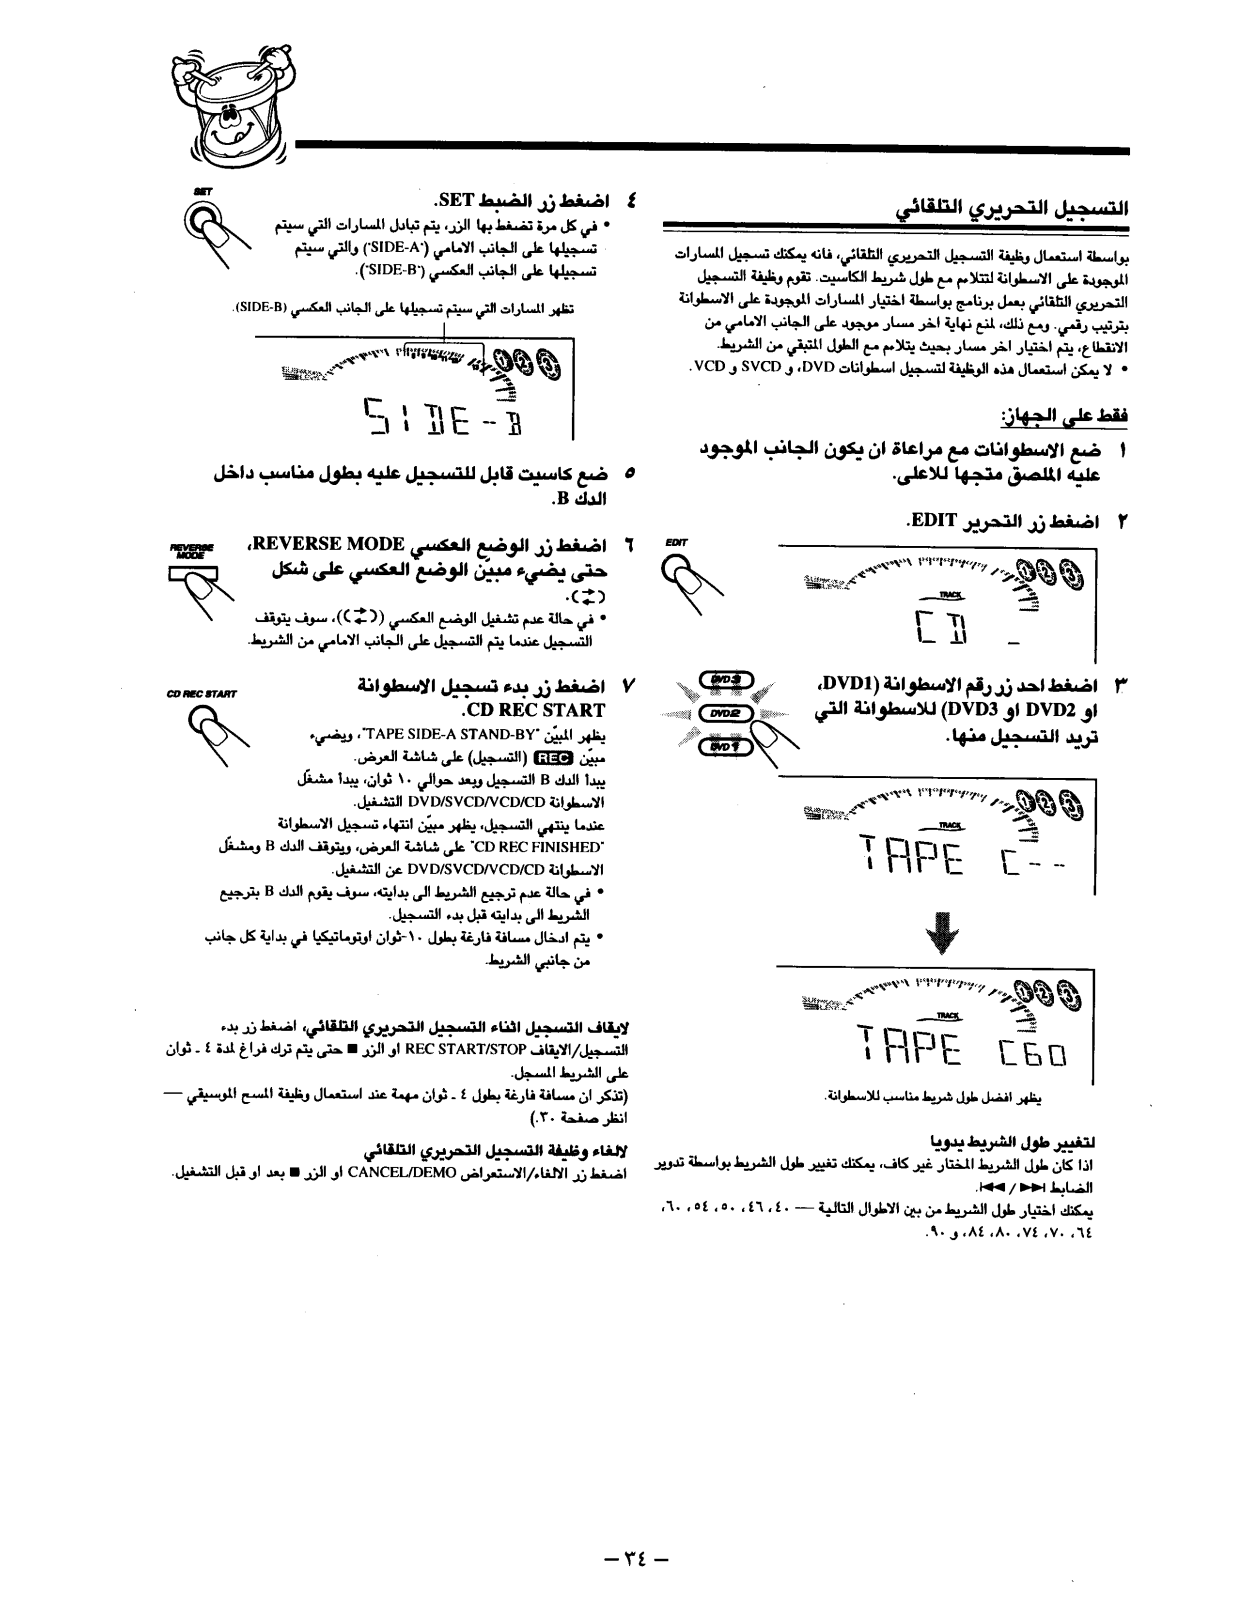 التسجيل التحريري التلقائي
بواسطة استعمال وظيفة التسجيل التحريري التلقائي، فانه يمكنك تسجيل المسارات
الموجودة على الاسطوانة لتتلاءم مع طول شريط الكاسيت. تقوم وظيفة التسجيل
التحريري التلقائي بعمل برنامج بواسطة اختيار المسارات الموجودة على الاسطوانة
بترتيب رقمي. ومع ذلك، لمنع نهاية اخر مسار موجود على الجانب الامامي من
الانقطاع، يتم اختيار اخر مسار بحيث يتلاءم مع الطول المتبقي من الشريط.
• لا يمكن استعمال هذه الوظيفة لتسجيل اسطوانات DVD، و SVCD و VCD.
فقط على الجهاز:
١ ضع الاسطوانات مع مراعاة ان يكون الجانب الموجود
عليه الملصق متجها للاعلى.
٢ اضغط زر التحرير EDIT.
EDIT
TRACK
CD _
٣ اضغط احد زر رقم الاسطوانة (DVD1،
او DVD2 او DVD3) للاسطوانة التي
تريد التسجيل منها.
DVD3
DVD2
DVD1
TRACK
TAPE C--
TRACK
TAPE C60
يظهر افضل طول شريط مناسب للاسطوانة.
لتغيير طول الشريط يدويا
اذا كان طول الشريط المختار غير كاف، يمكنك تغيير طول الشريط بواسطة تدوير
الضابط ⏭ / ⏮.
يمكنك اختيار طول الشريط من بين الاطوال التالية — ٤٠، ٤٦، ٥٠، ٥٤، ٦٠،
٦٤، ٧٠، ٧٤، ٨٠، ٨٤، و ٩٠.
٤ اضغط زر الضبط SET.
SET
• في كل مرة تضغط بها الزر، يتم تبادل المسارات التي سيتم
تسجيلها على الجانب الامامي ("SIDE-A") والتي سيتم
تسجيلها على الجانب العكسي ("SIDE-B").
تظهر المسارات التي سيتم تسجيلها على الجانب العكسي (SIDE-B).
SIDE-B
٥ ضع كاسيت قابل للتسجيل عليه بطول مناسب داخل
الدك B.
٦ اضغط زر الوضع العكسي REVERSE MODE،
حتى يضيء مبيّن الوضع العكسي على شكل
(⇄).
REVERSE
MODE
• في حالة عدم تشغيل الوضع العكسي ((⇄))، سوف يتوقف
التسجيل عندما يتم التسجيل على الجانب الامامي من الشريط.
٧ اضغط زر بدء تسجيل الاسطوانة
CD REC START.
CD REC START
يظهر المبيّن "TAPE SIDE-A STAND-BY"، ويضيء
مبيّن REC (التسجيل) على شاشة العرض.
يبدأ الدك B التسجيل وبعد حوالي ١٠ ثوان، يبدأ مشغّل
الاسطوانة DVD/SVCD/VCD/CD التشغيل.
عندما ينتهي التسجيل، يظهر مبيّن انتهاء تسجيل الاسطوانة
"CD REC FINISHED" على شاشة العرض، ويتوقف الدك B ومشغّل
الاسطوانة DVD/SVCD/VCD/CD عن التشغيل.
• في حالة عدم ترجيع الشريط الى بدايته، سوف يقوم الدك B بترجيع
الشريط الى بدايته قبل بدء التسجيل.
• يتم ادخال مسافة فارغة بطول ١٠-ثوان اوتوماتيكيا في بداية كل جانب
من جانبي الشريط.
لايقاف التسجيل اثناء التسجيل التحريري التلقائي، اضغط زر بدء
التسجيل/الايقاف REC START/STOP او الزر ■ حتى يتم ترك فراغ لمدة ٤ ـ ثوان
على الشريط المسجل.
(تذكر ان مسافة فارغة بطول ٤ ـ ثوان مهمة عند استعمال وظيفة المسح الموسيقي —
انظر صفحة ٣٠.)
لالغاء وظيفة التسجيل التحريري التلقائي
اضغط زر الالغاء/الاستعراض CANCEL/DEMO او الزر ■ بعد او قبل التشغيل.
– ٣٤ –